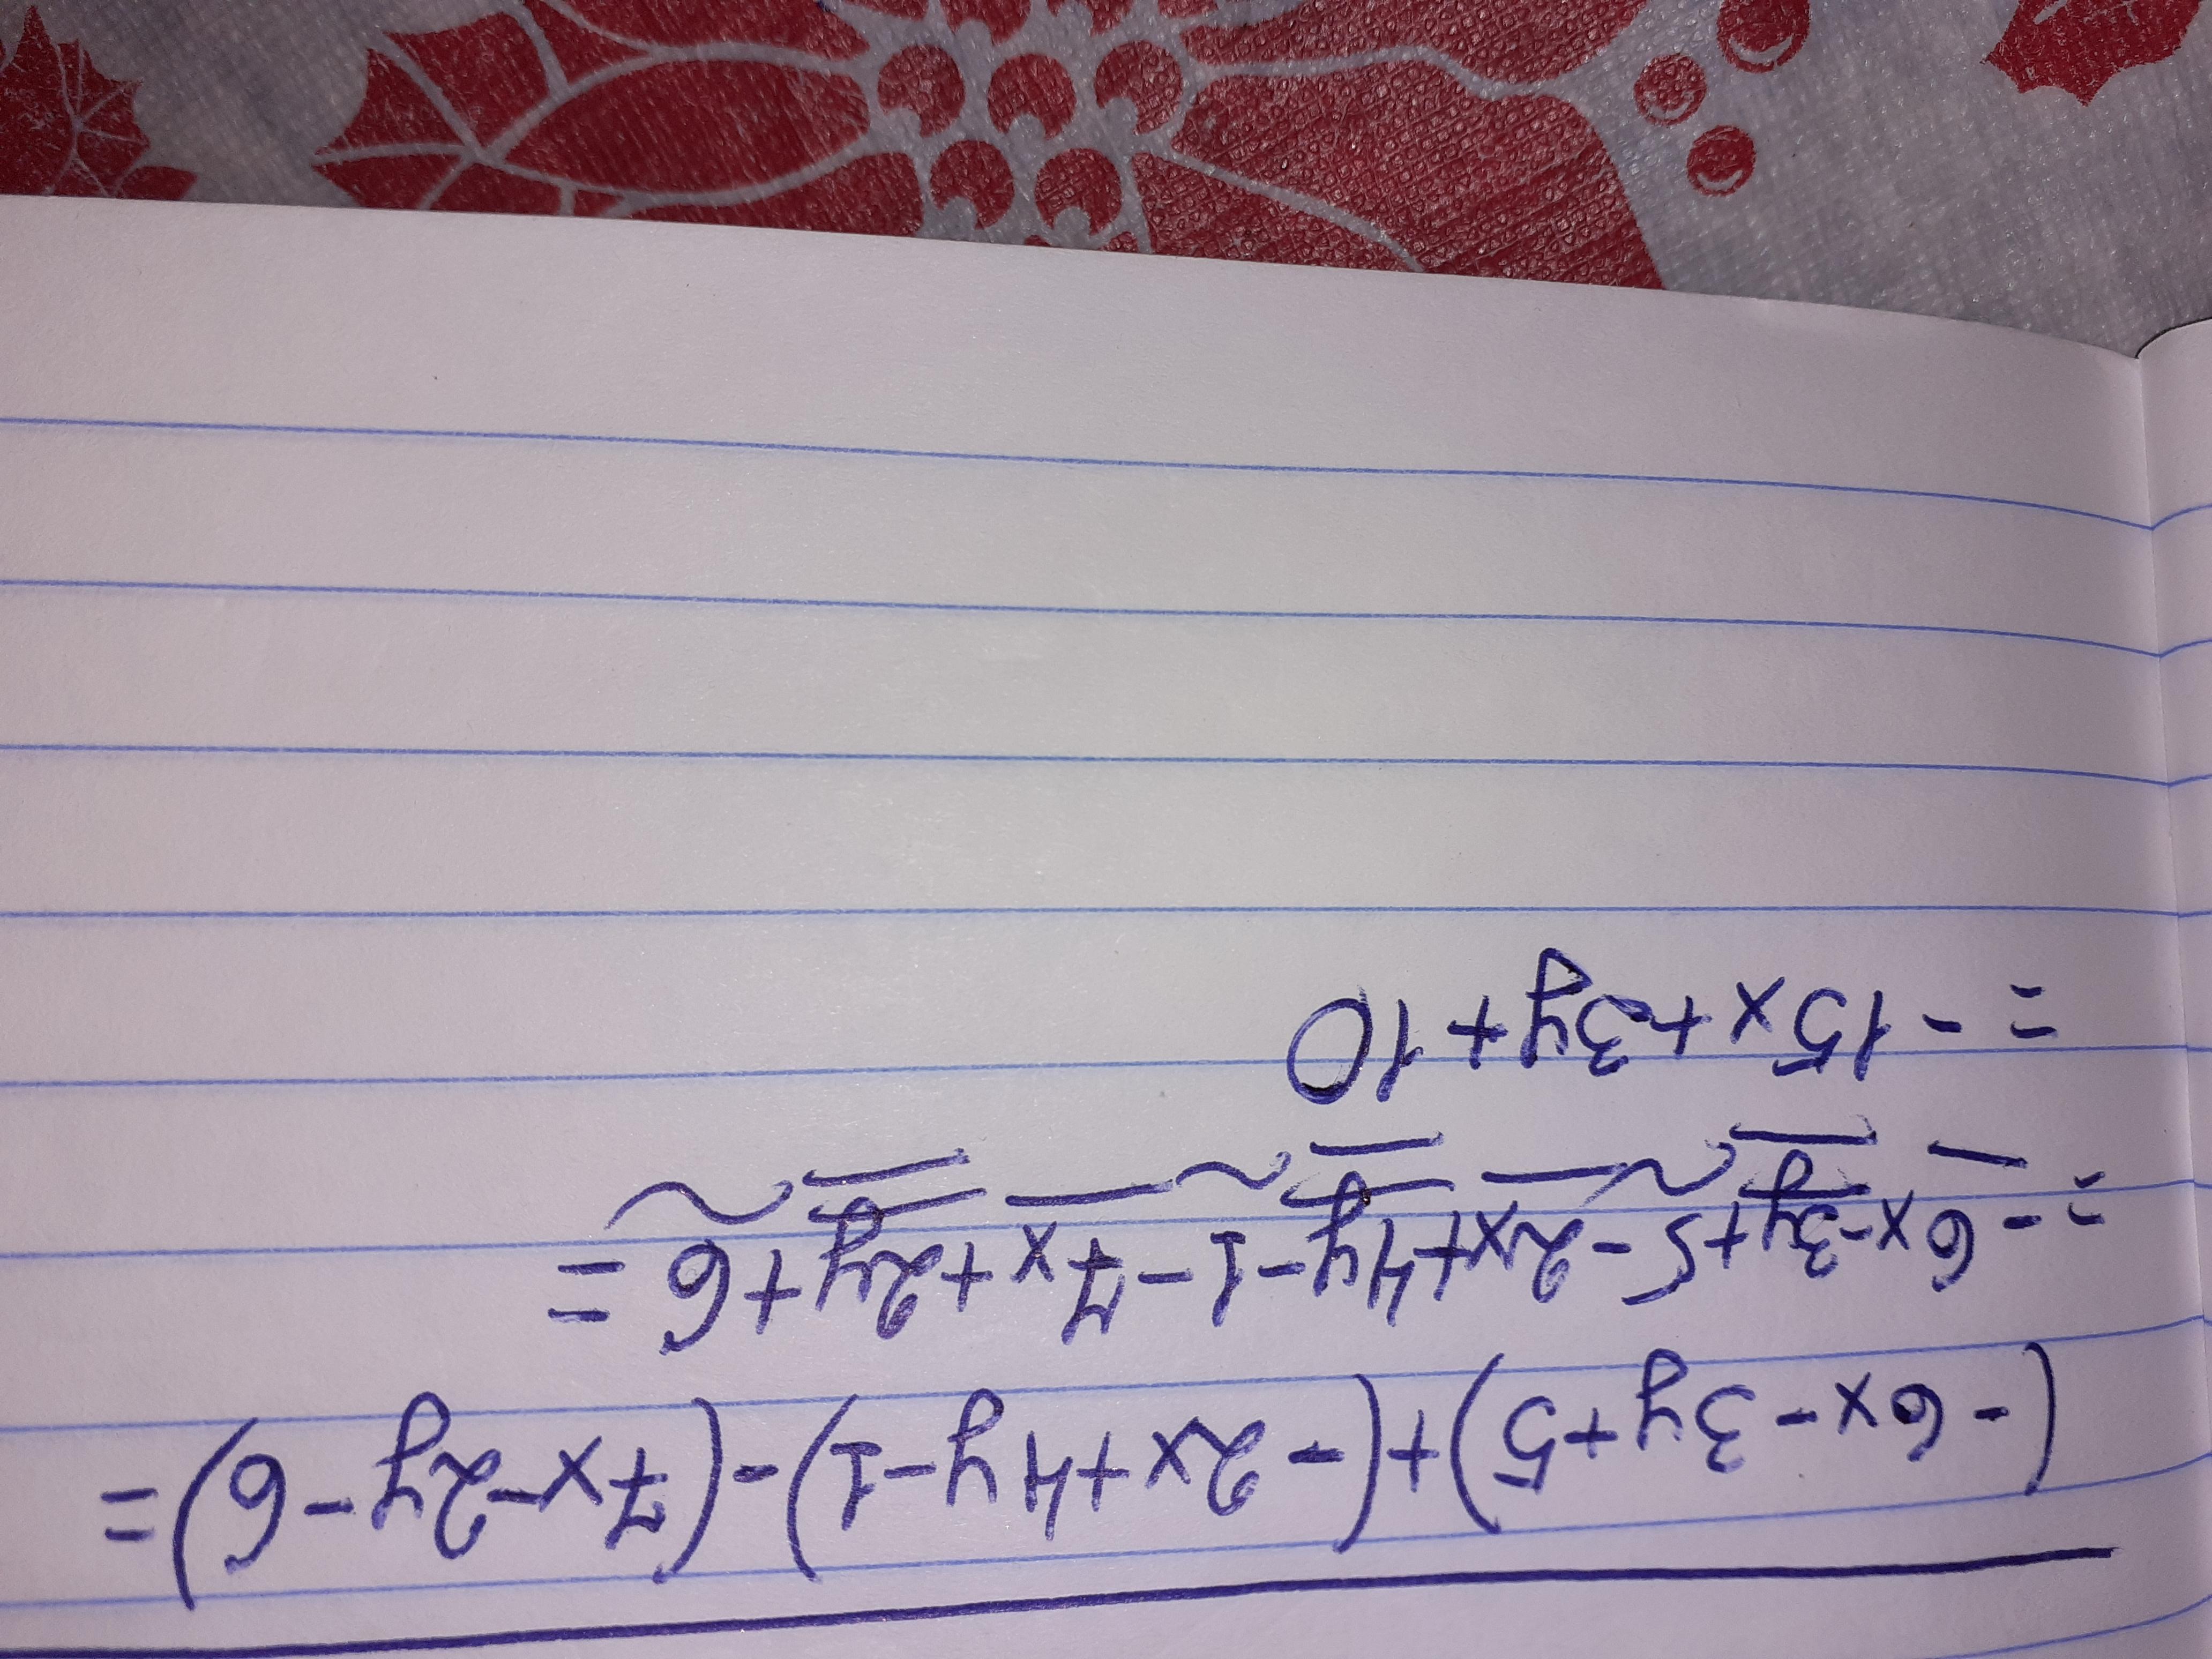 (-6x-3y+5)+(-2x+4y-1)-(7x-2y-6)=
=-6x-3y+5-2x+4y-1-7x+2y+6=
=-15x+3y+10